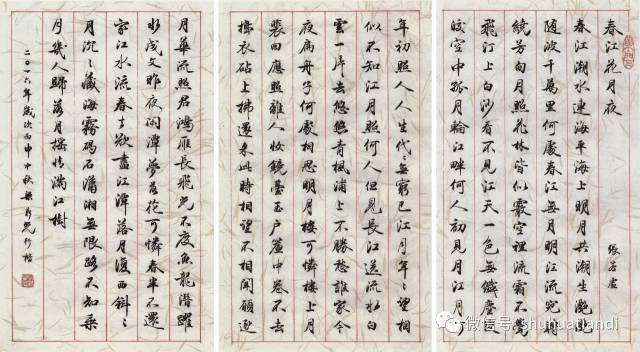 春江花月夜
張若虛
春江潮水連海平海上明月共潮生灧〻
隨波千萬里何處春江無月明江流宛轉
繞芳甸月照花林皆似霰空裡流霜不覺
飛汀上白沙看不見江天一色無纖塵皎
皎空中孤月輪江畔何人初見月江月何
年初照人人生代〻無窮已江月年〻望相
似不知江月照何人但見長江送流水白
雲一片去悠悠青楓浦上不勝愁誰家今
夜扁舟子何處相思明月樓可憐樓上月
裴回應照離人妝鏡臺玉戶簾中卷不去
擣衣砧上拂還來此時相望不相聞願逐
月華流照君鴻雁長飛光不度魚龍潛躍
水成文昨夜閒潭夢落花可憐春半不還
家江水流春去欲盡江潭落月復西斜〻
月沉〻藏海霧碣石瀟湘無限路不知乘
月幾人歸落月搖情滿江樹
年歲次丙申中秋
微信号: shuhuatiandi